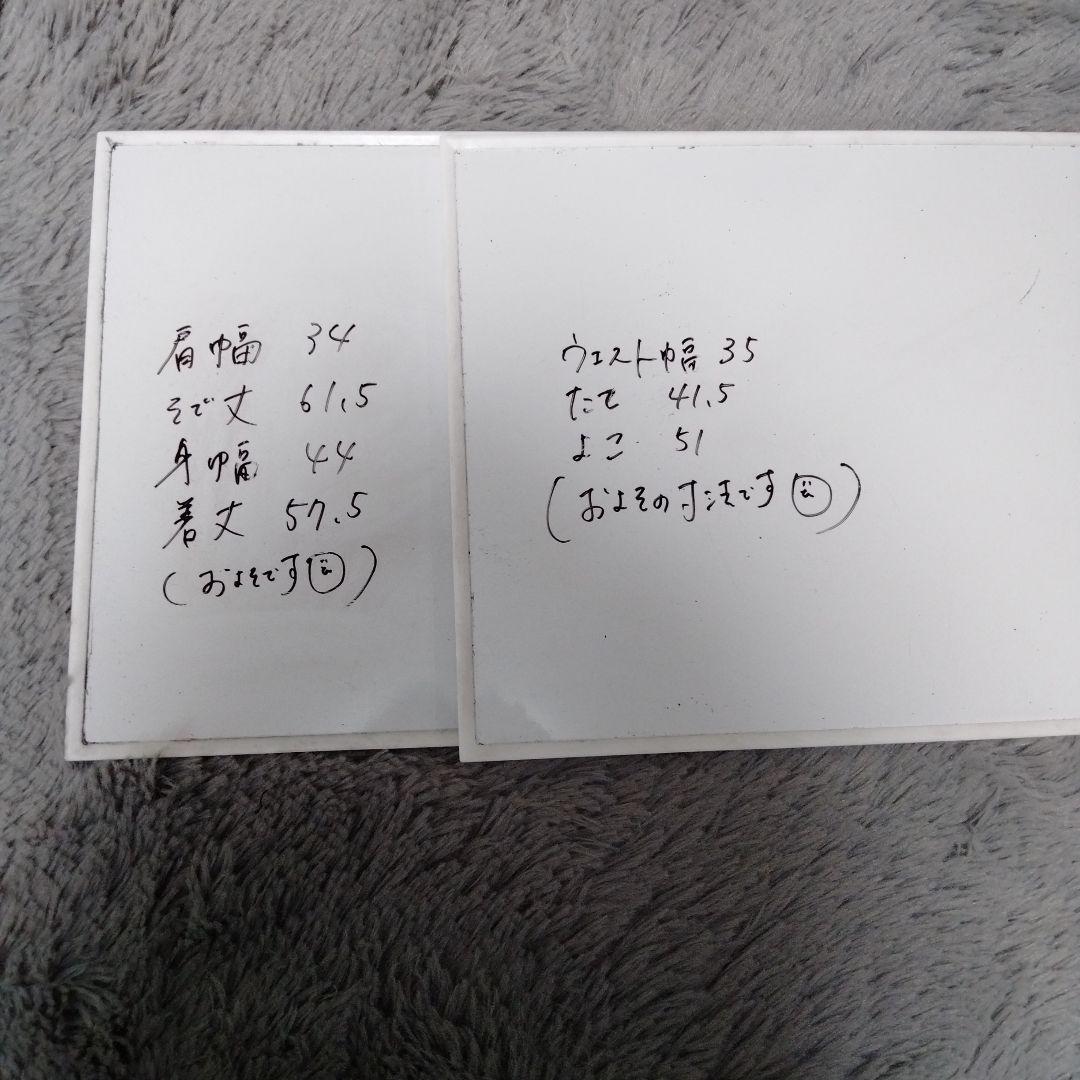 肩幅 34
そで丈 61.5
身幅 44
着丈 57.5
(およそです)
ウエスト幅 35
たて 41.5
よこ 51
(およその寸法です)